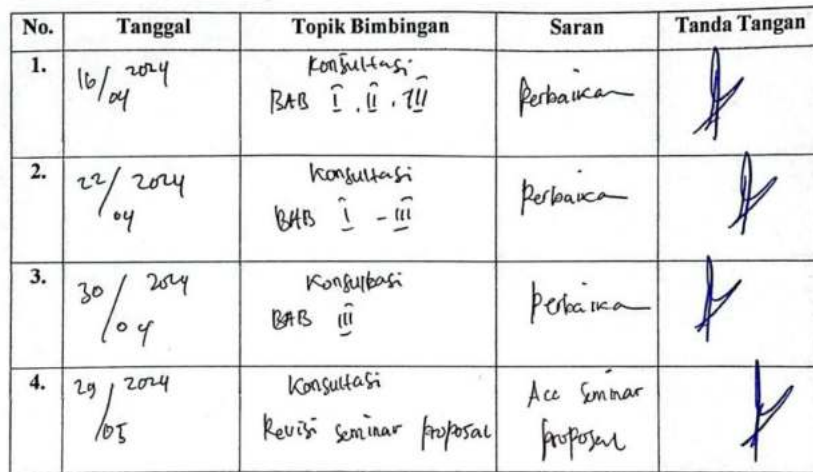 No. Tanggal Topik Bimbingan Saran Tanda Tangan
1. 16/04 2024 Konsultasi
BAB I, II, III Perbaikan
2. 22/04 2024 Konsultasi
BAB I - III Perbaikan
3. 30/04 2024 Konsultasi
BAB III Perbaikan
4. 29/05 2024 Konsultasi Acc Seminar
Revisi seminar proposal proposal